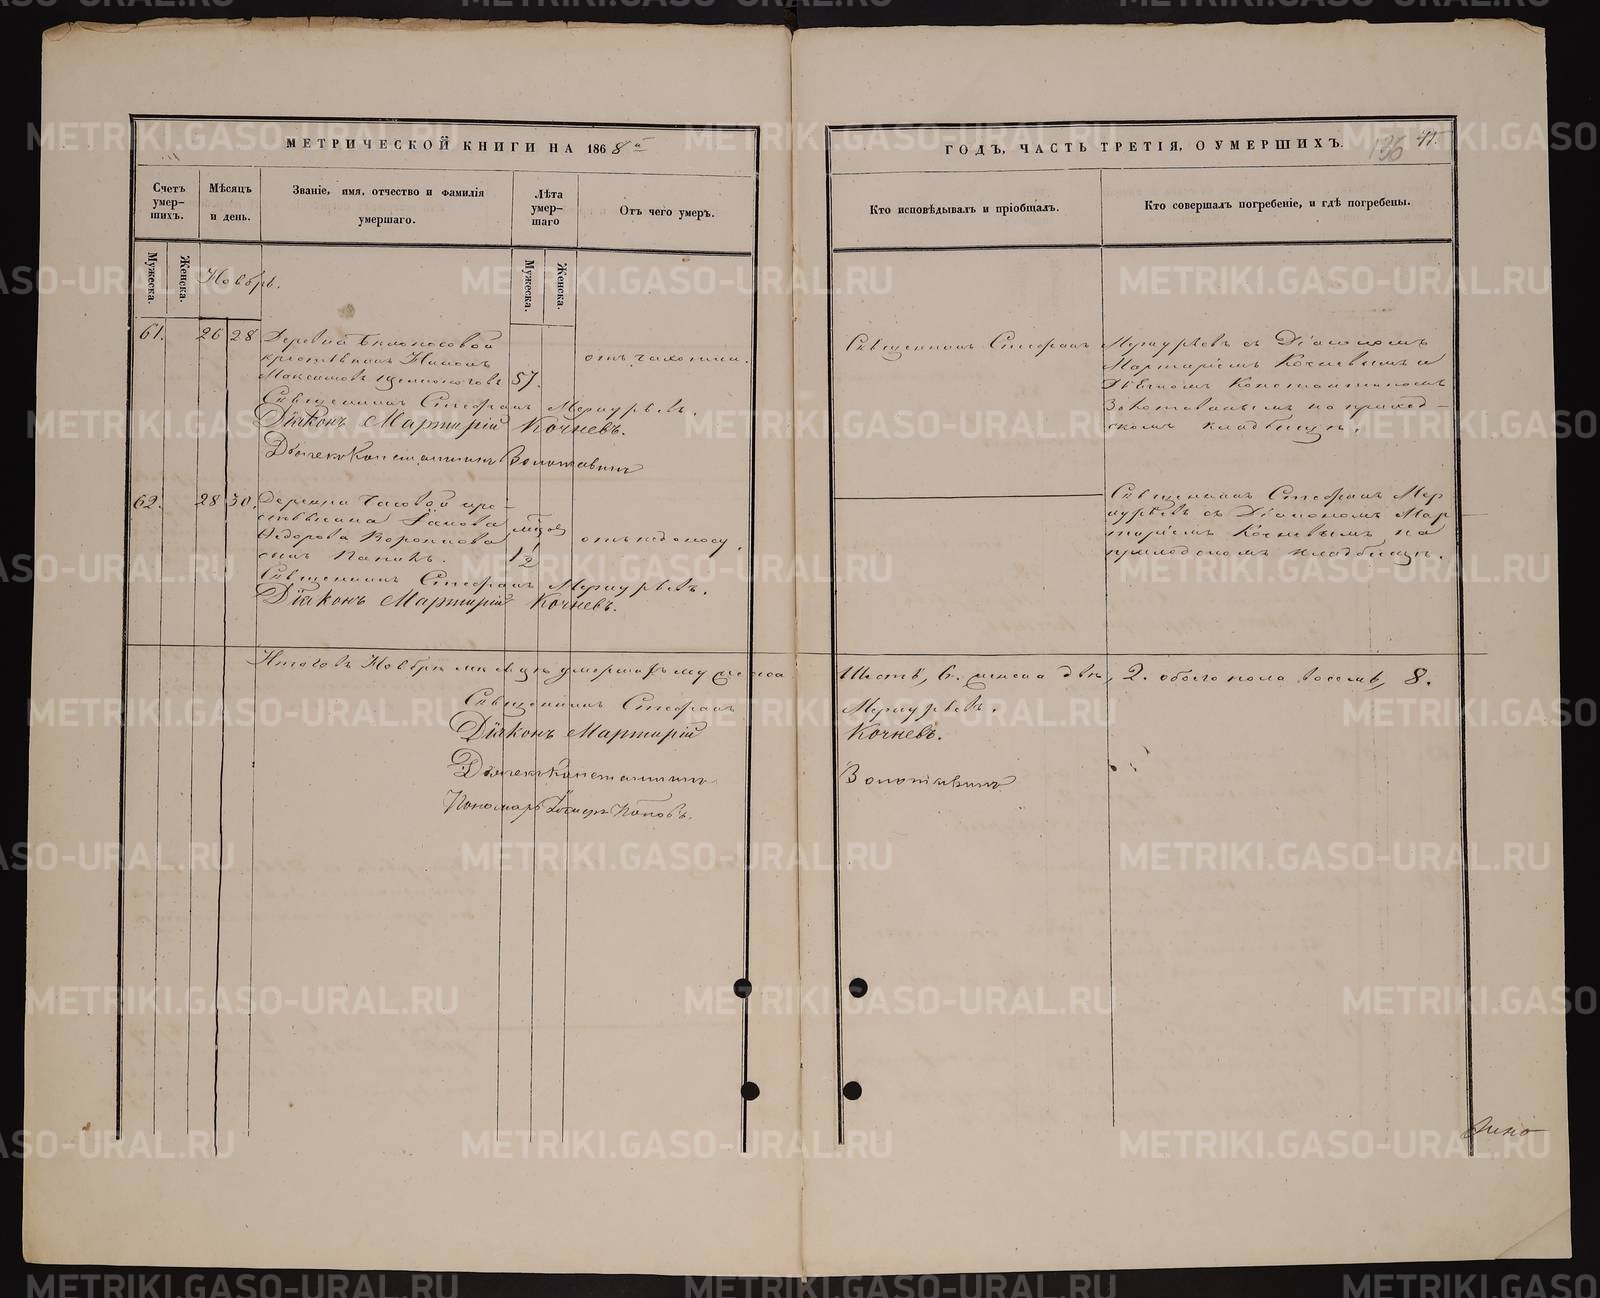 МЕТРИЧЕСКОЙ КНИГИ НА 1868 й
Счетъ умер-шихъ.
Мѣсяцъ и день.
Званіе, имя, отчество и фамилія умершаго.
Лѣта умер-шаго
Отъ чего умеръ.
Мужеска.
Женска.
Ноябрь.
Мужеска.
Женска.
61.
26
28
Деревни
крестьянинъ Никонъ
Максимовъ
57.
отъ чахотки.
Священникъ Стефанъ Меркурьевъ.
Діаконъ Мартирій Кочневъ.
Дьячекъ Константинъ Золотавинъ
62.
28
30.
Деревни Часовой кре-
стьянина Іакова
Ѳедорова Воронцова
сынъ
1 1/2
отъ недоносу.
Священникъ Стефанъ Меркурьевъ.
Діаконъ Мартирій Кочневъ.
Итого въ Ноябрѣ мѣсяцѣ умершихъ мужеска
Священникъ Стефанъ
Діаконъ Мартирій
Дьячекъ Константинъ
Пономарь Поповъ.
ГОДЪ, ЧАСТЬ ТРЕТІЯ, О УМЕРШИХЪ.
136
41.
Кто исповѣдывалъ и пріобщалъ.
Кто совершалъ погребеніе, и гдѣ погребены.
Священникъ Стефанъ
Меркурьевъ съ Діакономъ
Мартиріемъ Кочневымъ и
Дьячкомъ Константиномъ
Золотавинымъ на приход-
скомъ кладбищѣ.
Священникъ Стефанъ Мер
курьевъ съ Діакономъ Мар
тиріемъ Кочневымъ на
приходскомъ кладбищѣ.
Шесть, 6. женска двѣ, 2. обоего пола восемь, 8.
Меркурьевъ.
Кочневъ.
Золотавинъ
METRIKI.GASO-URAL.RU